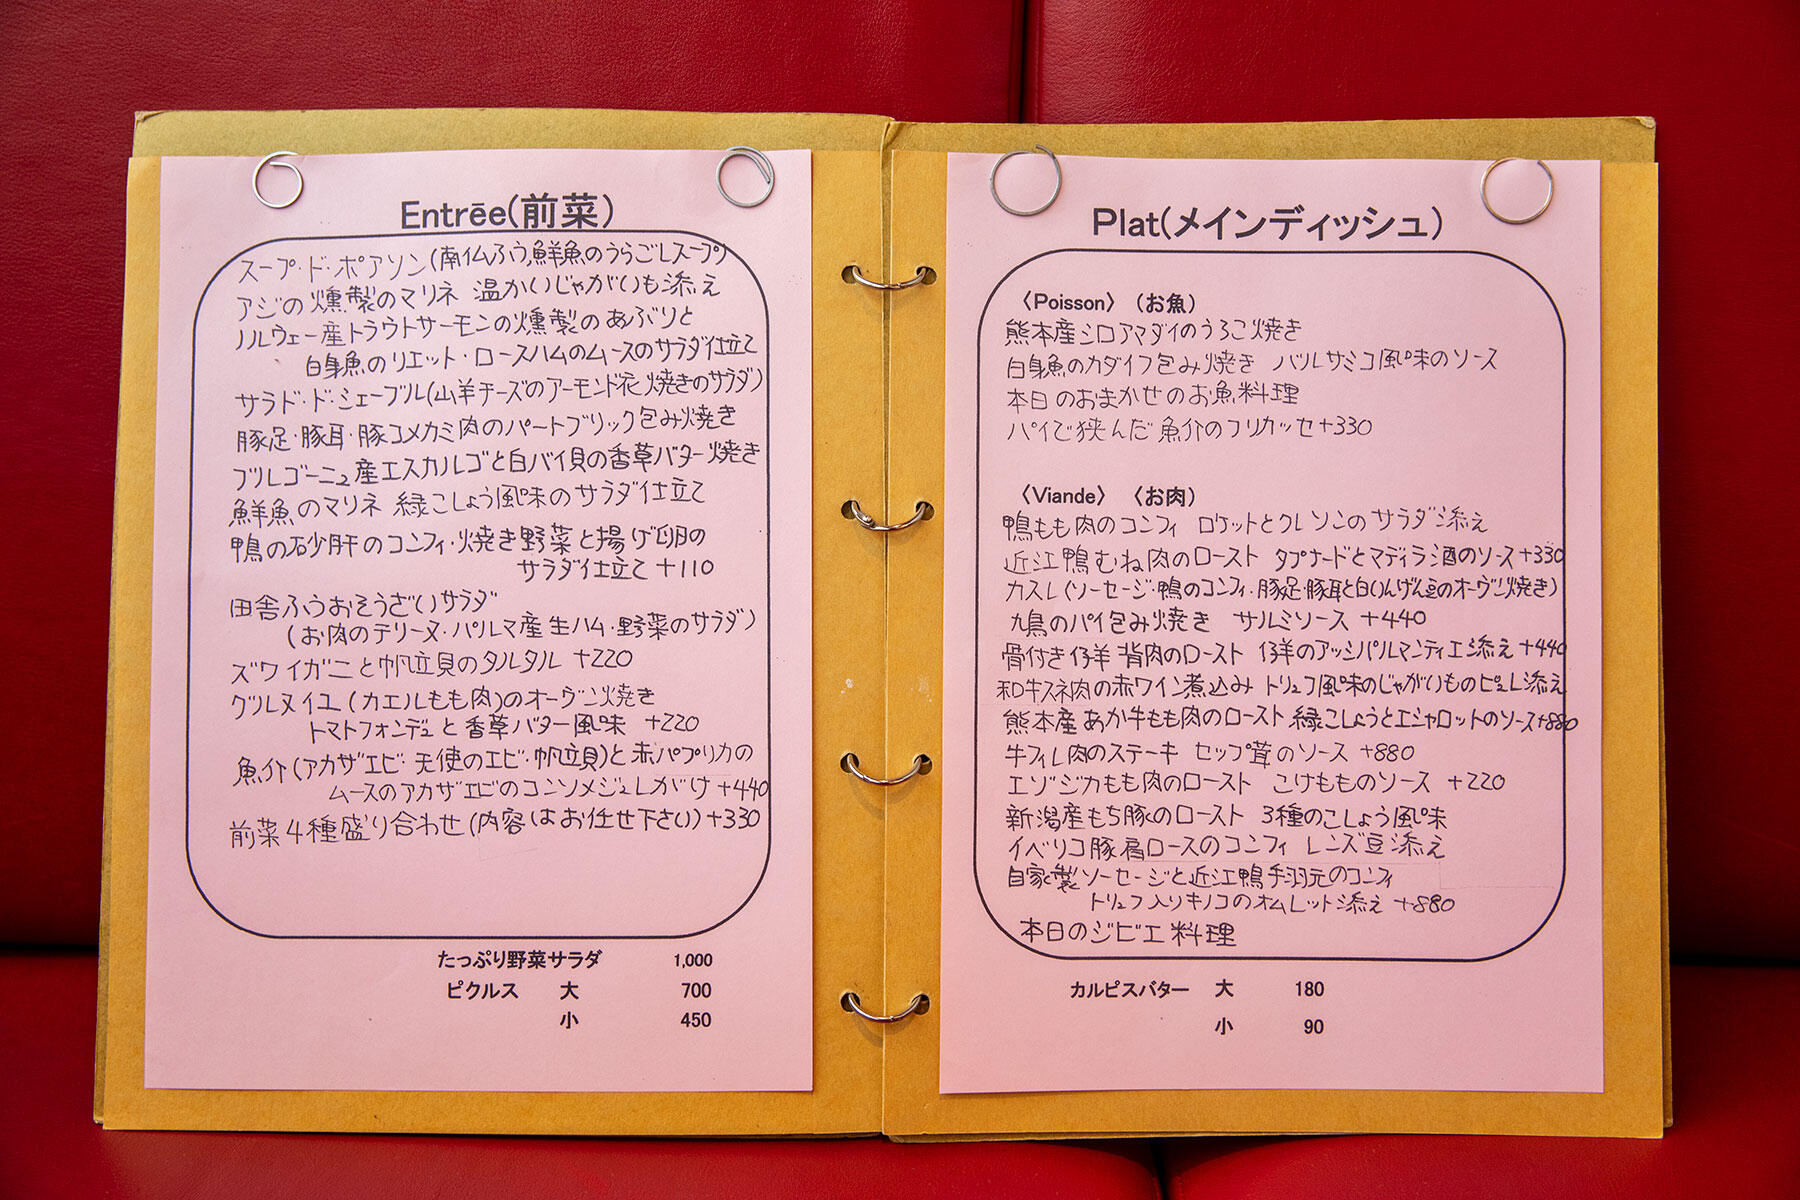 Entrēe(前菜)
スープ・ド・ポアソン(南仏ふう鮮魚のうらごしスープ)
アジの燻製のマリネ 温かいじゃがいも添え
ノルウェー産トラウトサーモンの燻製のあぶりと
白身魚のリエット・ロースハムのムースのサラダ仕立て
サラド・ド・シェーブル(山羊チーズのアーモンド衣焼きのサラダ)
豚足・豚耳・豚コメカミ肉のパートブリック包み焼き
ブルゴーニュ産エスカルゴと白バイ貝の香草バター焼き
鮮魚のマリネ 緑こしょう風味のサラダ仕立て
鴨の砂肝のコンフィ・焼き野菜と揚げ卵の
サラダ仕立て +110
田舎ふうおそうざいサラダ
(お肉のテリーヌ・パルマ産生ハム・野菜のサラダ)
ズワイガニと帆立貝のタルタル +220
グルヌイユ(カエルもも肉)のオーヴン焼き
トマトフォンデュと香草バター風味 +220
魚介(アカザエビ・天使のエビ・帆立貝)と赤パプリカの
ムースのアカザエビのコンソメジュレがけ +440
前菜4種盛り合わせ(内容はお任せ下さい)+330
たっぷり野菜サラダ 1,000
ピクルス 大 700
小 450
Plat(メインディッシュ)
〈Poisson〉(お魚)
熊本産シロアマダイのうろこ焼き
白身魚のカダイフ包み焼き バルサミコ風味のソース
本日のおまかせのお魚料理
パイで挟んだ魚介のフリカッセ+330
〈Viande〉〈お肉)
鴨もも肉のコンフィ ロケットとクレソンのサラダ添え
近江鴨むね肉のロースト タプナードとマディラ酒のソース+330
カスレ(ソーセージ・鴨のコンフィ・豚足・豚耳と白いんげん豆のオーヴン焼き)
鳩のパイ包み焼き サルミソース +440
骨付き仔羊背肉のロースト 仔羊のアッシパルマンティエ添え+440
和牛スネ肉の赤ワイン煮込み トリュフ風味のじゃがいものピュレ添え
熊本産あか牛もも肉のロースト 緑こしょうとエシャロットのソース+880
牛フィレ肉のステーキ セップ茸のソース +880
エゾジカもも肉のロースト こけもものソース +220
新潟産もち豚のロースト 3種のこしょう風味
イベリコ豚肩ロースのコンフィ レンズ豆添え
自家製ソーセージと近江鴨手羽元のコンフィ
トリュフ入りキノコのオムレット添え +880
本日のジビエ料理
カルピスバター 大 180
小 90